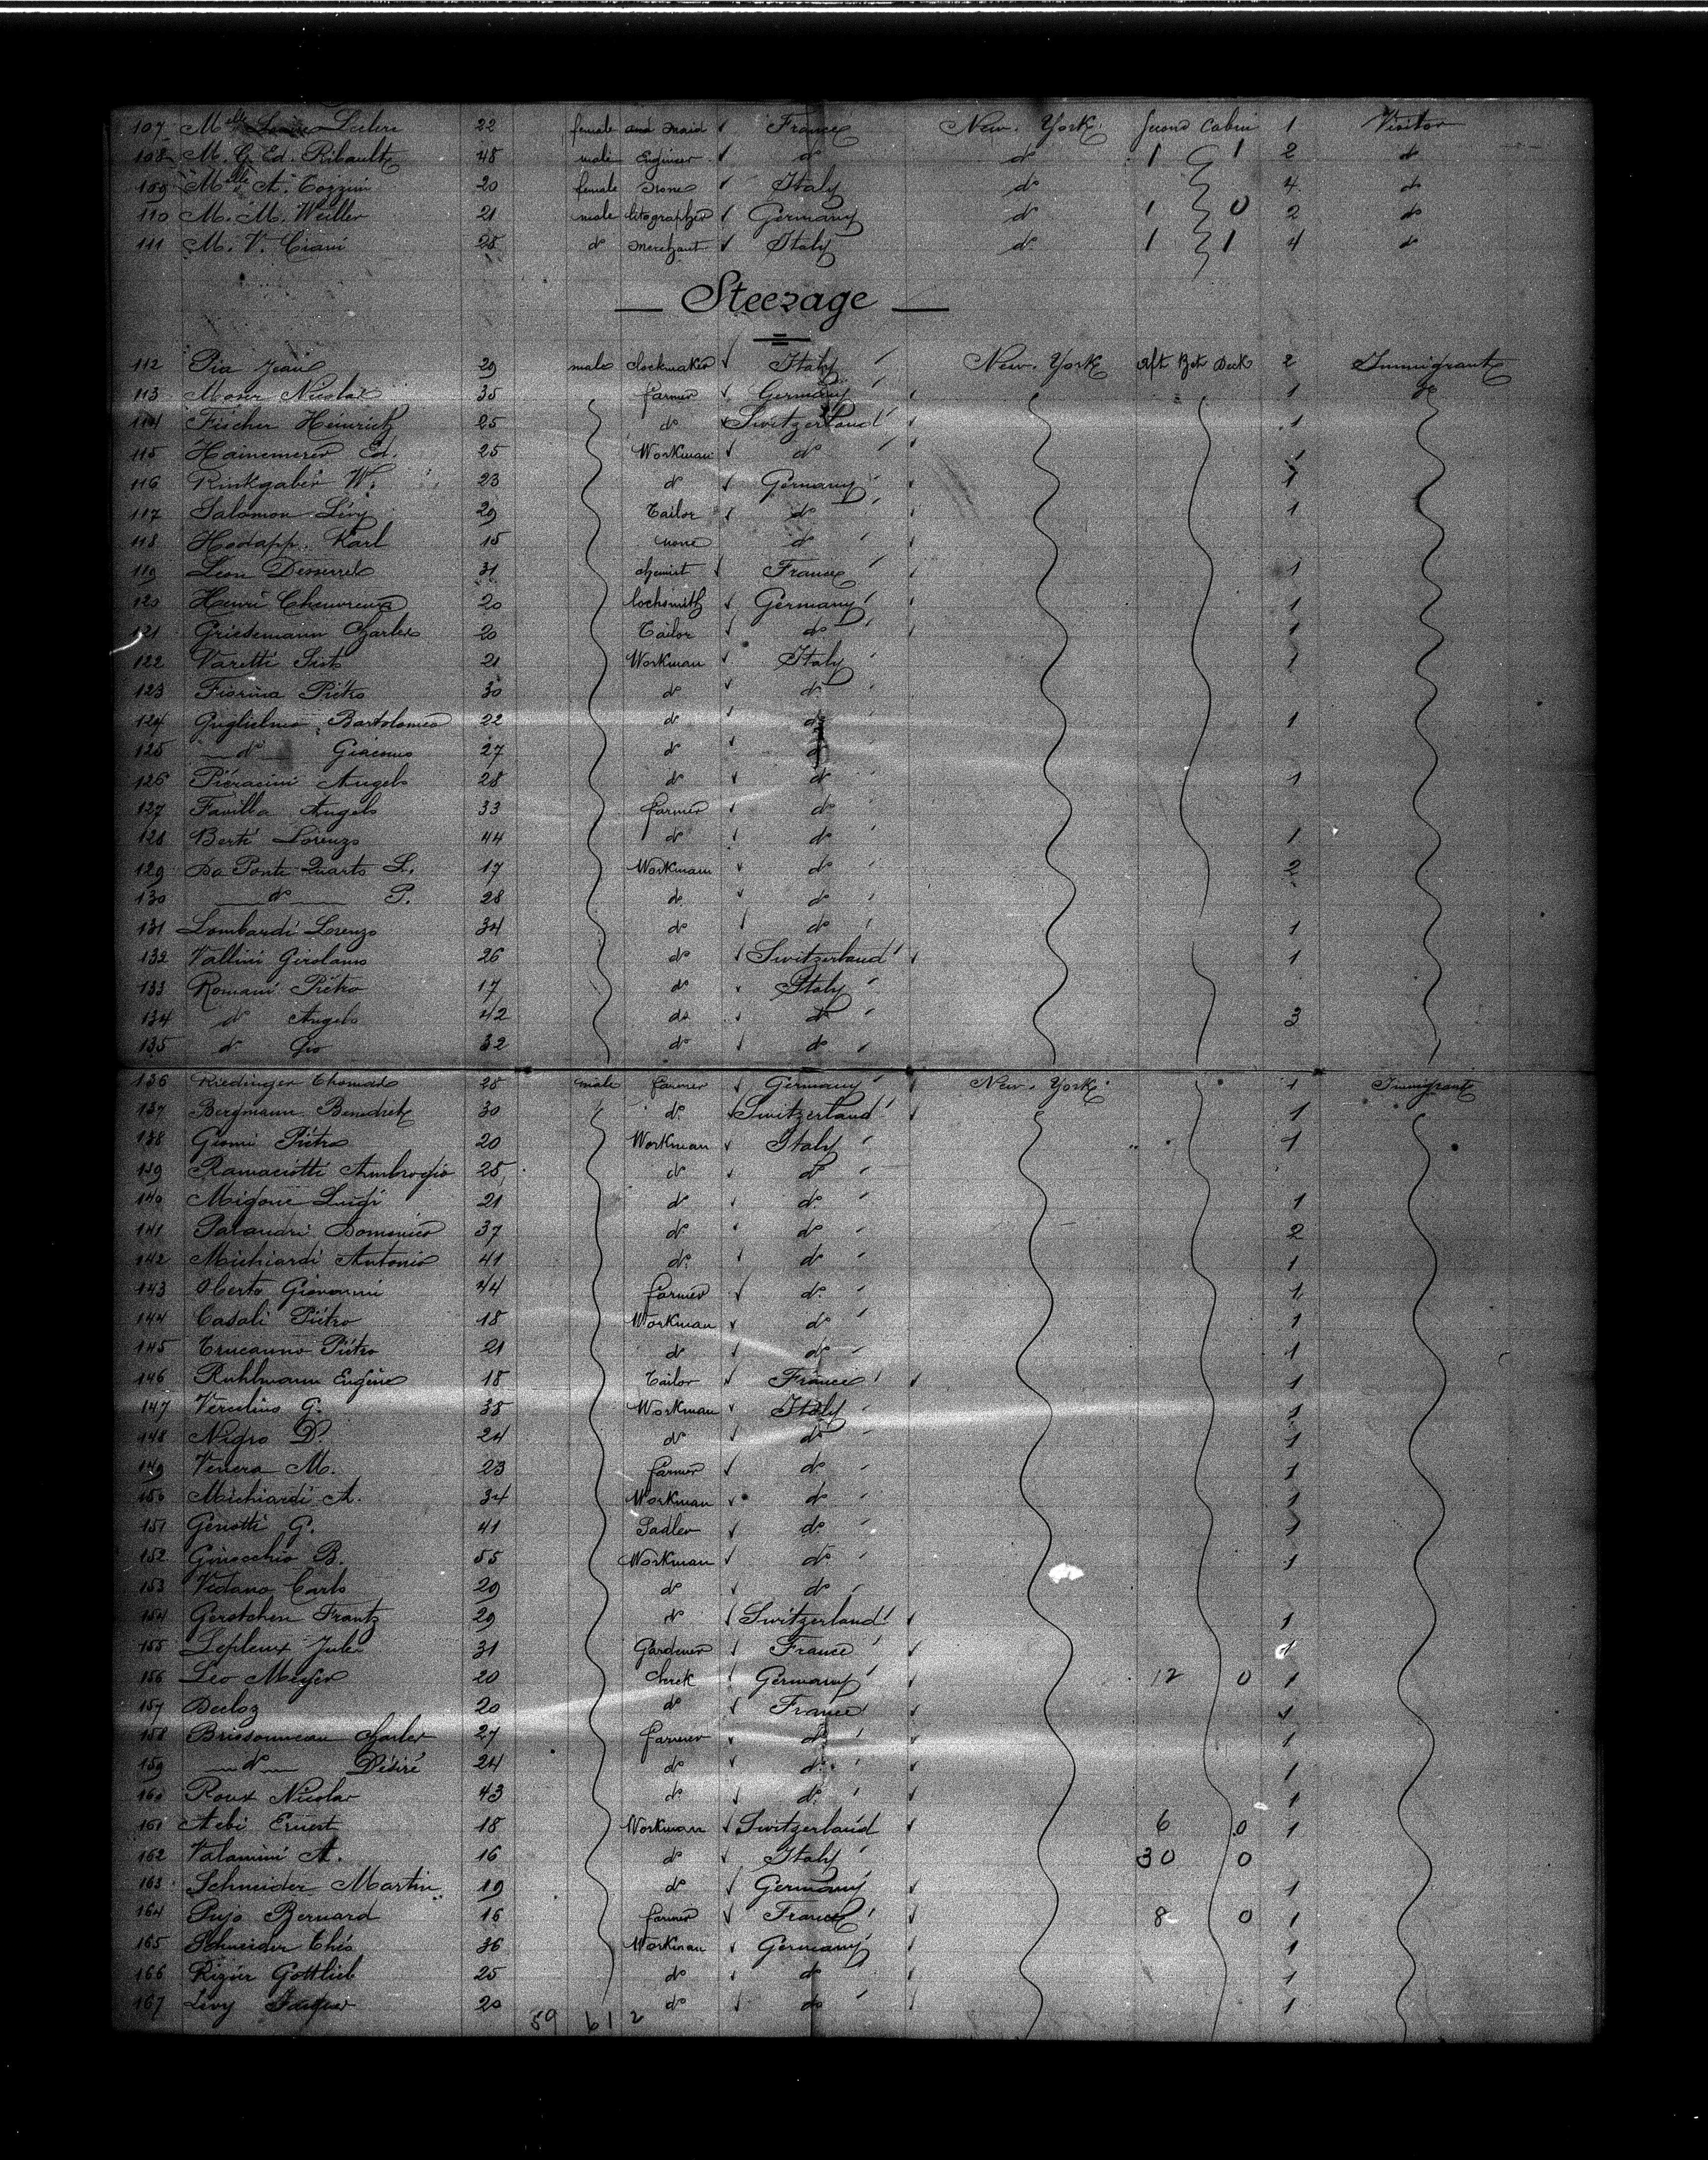 107 Mlle Leclerc 22 female and maid France New. York Second Cabin 1 Visitor
108 M. G. Ed. Ribault 48 male Engineer do do 1 1 2 do
109 Mlle A. Cozzini 20 female none Italy do 4 do
110 M. M. Weiller 21 male litographer Germany do 1 0 2 do
111 M. V. Ciani 28 do merchant Italy do 1 1 4 do
Steerage
112 Pia Jean 29 male clockmaker Italy New. York Aft Bet Deck 2 Immigrant
113 Moser Nicolas 35 farmer Germany 1 do
114 Fischer Heinrich 25 do Switzerland 1
115 Ed. 25 Workman do 1
116 W. 23 do Germany 1
117 Salomon Lévy 29 Tailor do 1
118 Hodapp. Karl 15 none do
119 Léon 31 chemist France 1
120 Henri 20 locksmith Germany 1
121 Griesemann Charles 20 Tailor do 1
122 Varetti Sisto 21 Workman Italy 1
123 Fiorina Pietro 30 do do
124 Guglielmo Bartolomeo 22 do do 1
125 do Giacomo 27 do do
126 Pieracini Angelo 28 do do 1
127 Favilla Angelo 33 farmer do
128 Berti Lorenzo 44 do do 1
129 Da Ponte Quarto L. 17 Workman do 2
130 do P. 28 do do
131 Lombardi Lorenzo 34 do do 1
132 Vallini Girolamo 26 do Switzerland 1
133 Romani Pietro 17 do Italy
134 do Angelo 42 do do 3
135 do Gio 32 do do
136 Riedinger Thomas 28 male farmer Germany New. York 1 Immigrant
137 Bergmann Benedich 30 do Switzerland 1
138 Giomi Pietro 20 Workman Italy 1
139 Ramaciotti Ambrogio 25 do do
140 Migone Luigi 21 do do 1
141 Palandri Domenico 37 do do 2
142 Michiardi Antonio 41 do do 1
143 Oberto Giovanni 44 farmer do 1
144 Casali Pietro 18 Workman do 1
145 Trucanno Pietro 21 do do 1
146 Ruhlmann Eugène 18 Tailor France 1
147 Vercelino G. 38 Workman Italy 1
148 Nigro D. 24 do do 1
149 Venera M. 23 farmer do 1
150 Michiardi A. 34 Workman do 1
151 Geriotti G. 41 Sadler do 1
152 Ginocchio B. 55 Workman do 1
153 Vidano Carlo 29 do do
154 Gerstchen Frantz 29 do Switzerland 1
155 Lepleux Jules 31 Gardener France 1
156 Léo Meyer 20 Clerck Germany 12 0 1
157 Decloz 20 do France
158 Brissonneau Charles 27 farmer do 1
159 do Désiré 24 do do 1
160 Roux Nicolas 43 do do 1
161 Aebi Ernest 18 Workman Switzerland 6 0 1
162 Valamini A. 16 do Italy 30 0
163 Schneider Martin 19 do Germany 1
164 Pujo Bernard 16 farmer France 8 0 1
165 Schneider Théo 36 Workman Germany 1
166 Gottlieb 25 do do 1
167 Lévy 20 do do 1
59 61 2